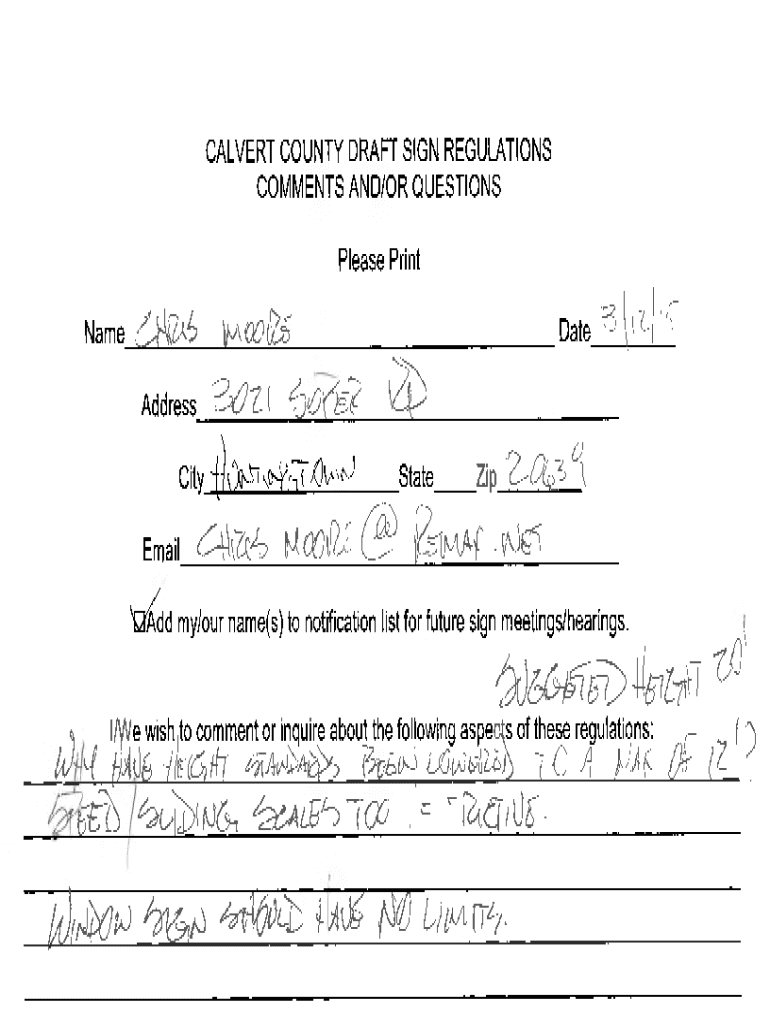 CALVERT COUNTY DRAFT SIGN REGULATIONS
COMMENTS AND/OR QUESTIONS
Please Print
Name CHRIS MOORE Date 3/12/15
Address 3021 SOPER RD
City HUNTINGTOWN State Zip 20639
Email CHRIS MOORE@REMAX.NET
Add my/our name(s) to notification list for future sign meetings/hearings.
SUGGESTED HEIGHT 20'
I/We wish to comment or inquire about the following aspects of these regulations:
WHY HAVE HEIGHT STANDARDS BEEN LOWERED TO A MAX OF 12'?
SPEED/SLIDING SCALES TOO
WINDOW SIGN SHOULD HAVE NO LIMITS.